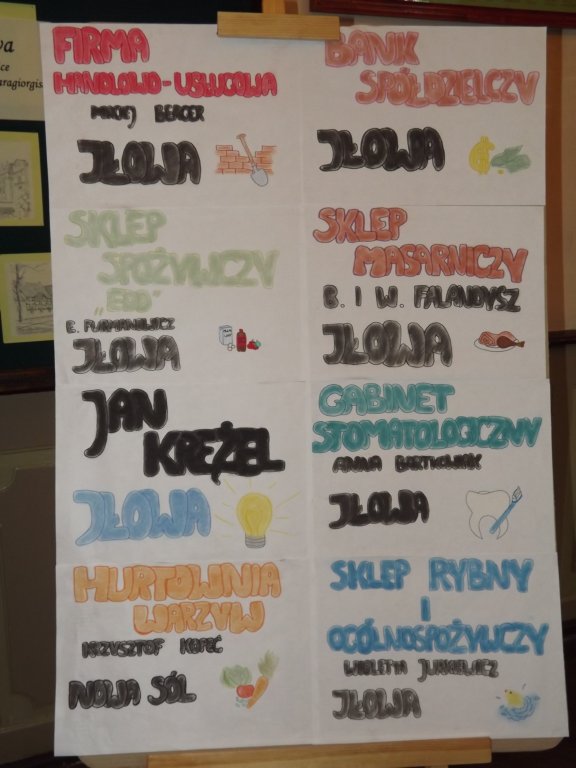 FIRMA
HANDLOWO-USŁUGOWA
MACIEJ BERGER
IŁOWA
BANK
SPÓŁDZIELCZY
IŁOWA
SKLEP
SPOŻYWCZY
„EGO”
E. FURMANIEWICZ
IŁOWA
SKLEP
MASARNICZY
B. I W. FALANDYSZ
IŁOWA
JAN
KRĘŻEL
IŁOWA
GABINET
STOMATOLOGICZNY
ANNA BARTKOWIAK
IŁOWA
HURTOWNIA
WARZYW
KRZYSZTOF KOPEĆ
NOWA SÓL
SKLEP RYBNY
I
OGÓLNOSPOŻYWCZY
WIOLETTA JURKIEWICZ
IŁOWA